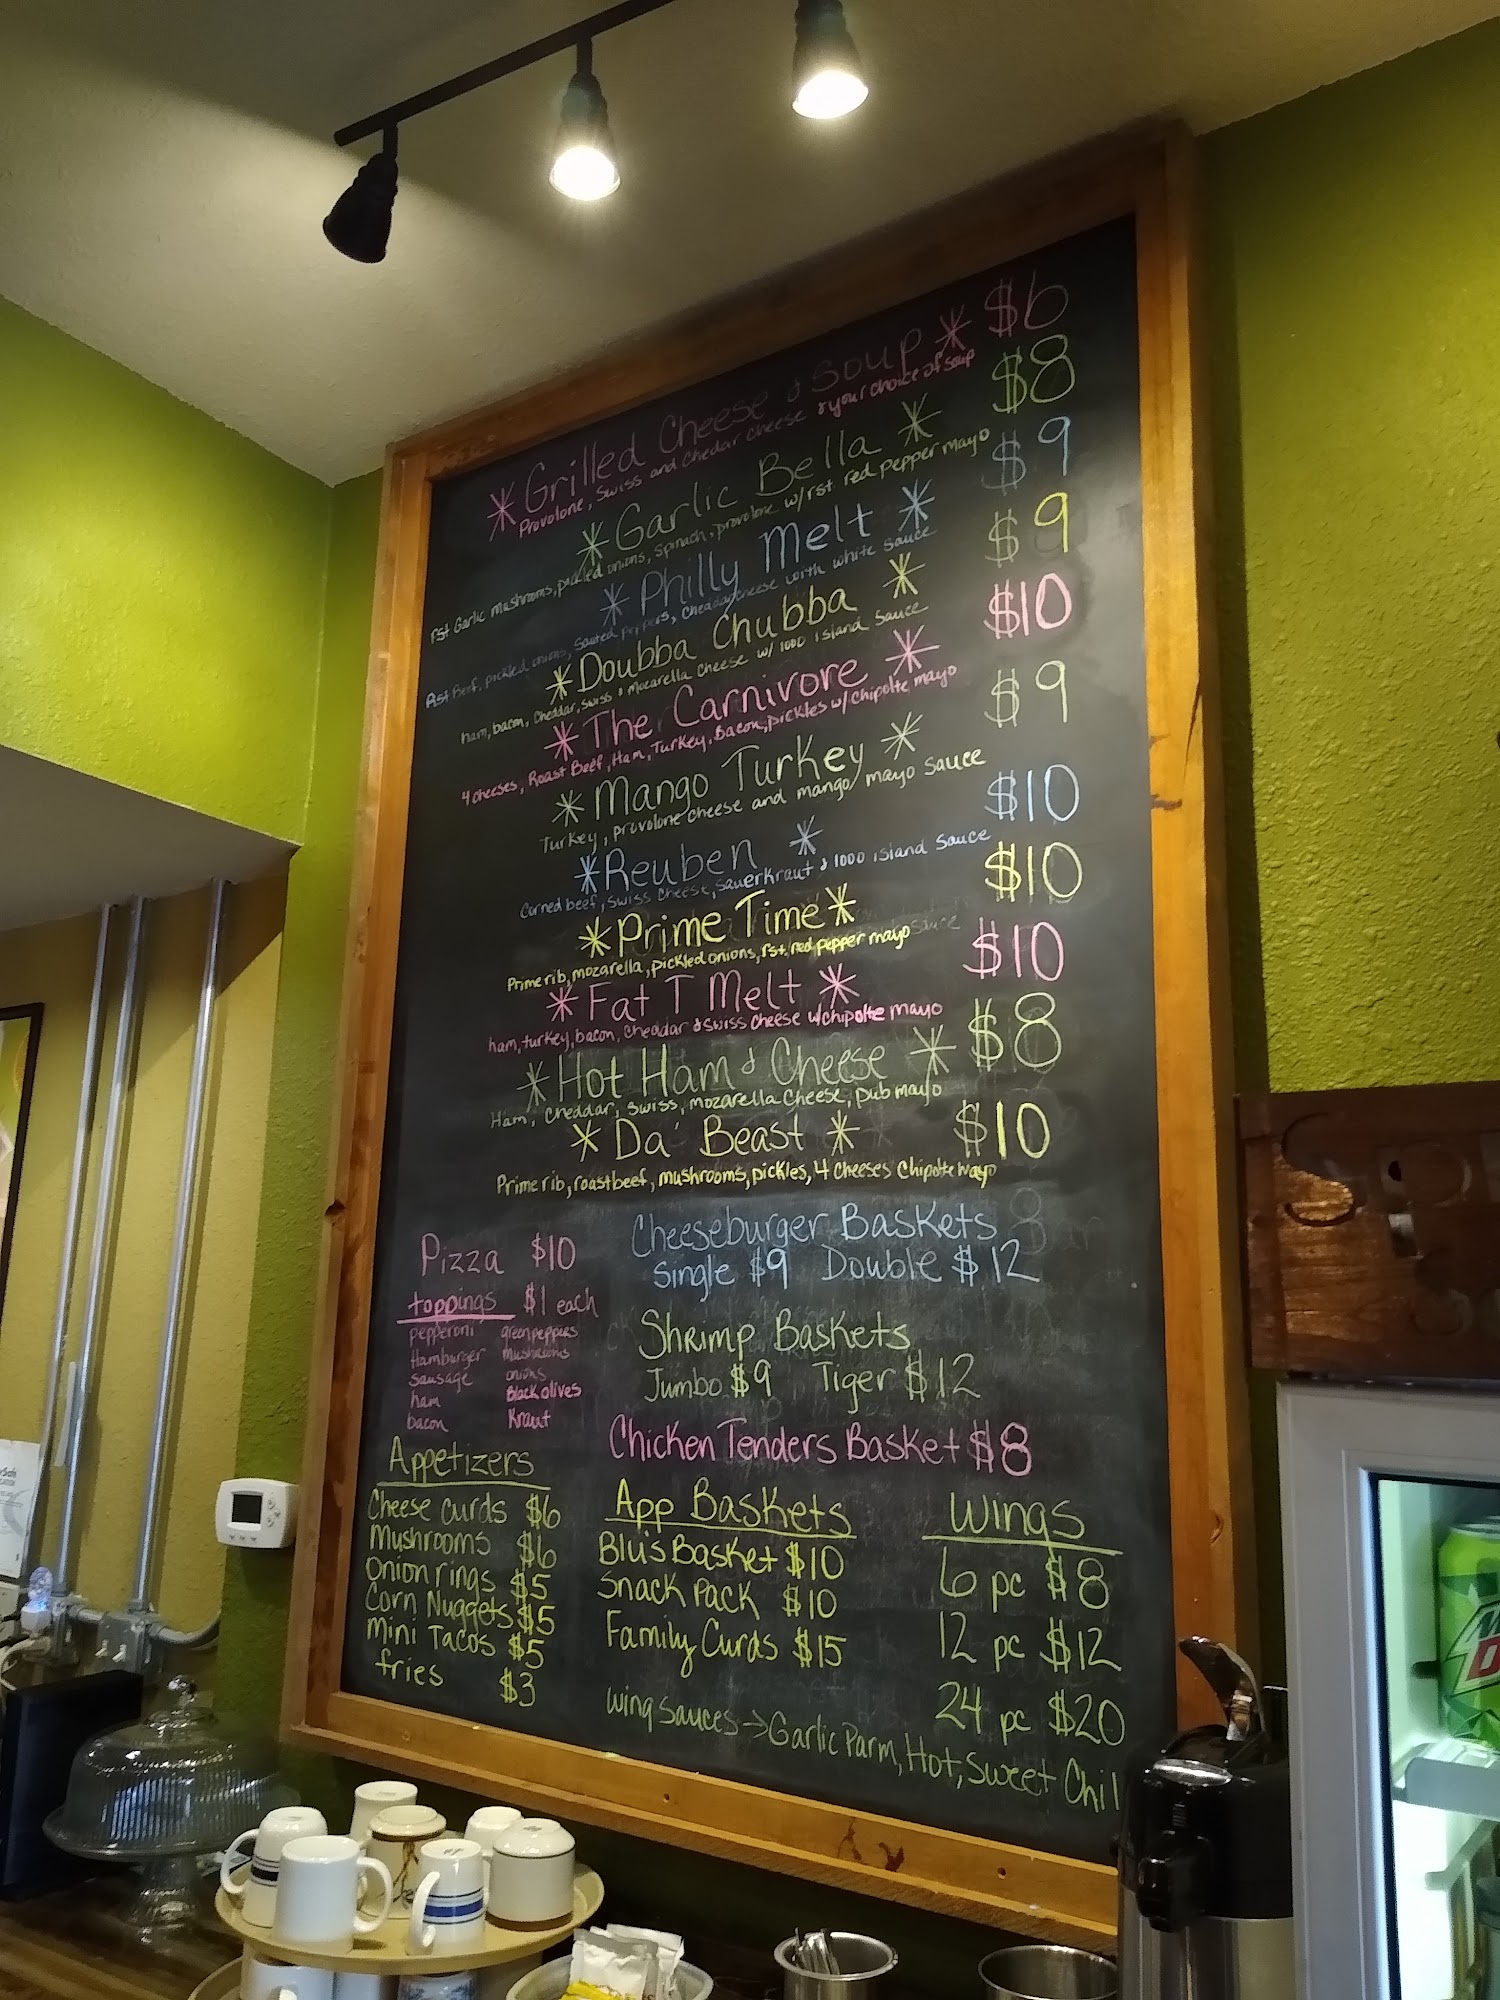 *Grilled Cheese & Soup* $6
Provolone, Swiss and Chedar cheese & your choice of soup
*Garlic Bella* $8
rst Garlic mushrooms, pickled onions, spinach, provolone w/rst red pepper mayo
*Philly Melt* $9
Rst Beef, pickled onions, Sauted peppers, cheddar cheese with white sauce
*Doubba Chubba* $9
ham, bacon, Cheddar, swiss & mozarella cheese w/ 1000 island sauce
*The Carnivore* $10
4 cheeses, Roast Beef, Ham, Turkey, Bacon, pickles w/ chipolte mayo
*Mango Turkey* $9
Turkey, provolone cheese and mango/mayo sauce
*Reuben* $10
Corned beef, swiss cheese, sauerkraut & 1000 island sauce
*Prime Time* $10
Prime rib, mozarella, pickled onions, rst red pepper mayo
*Fat T Melt* $10
ham, turkey, bacon, cheddar & swiss cheese w/chipolte mayo
*Hot Ham & Cheese* $8
Ham, cheddar, swiss, mozarella cheese, pub mayo
*Da' Beast* $10
Prime rib, roast beef, mushrooms, pickles, 4 cheeses Chipolte mayo
Pizza $10
toppings $1 each
pepperoni green peppers
Hamburger mushrooms
sausage onions
ham Black olives
bacon Kraut
Cheeseburger Baskets
Single $9 Double $12
Shrimp Baskets
Jumbo $9 Tiger $12
Chicken Tenders Basket $8
Appetizers
Cheese curds $6
Mushrooms $6
Onion rings $5
Corn Nuggets $5
Mini Tacos $5
fries $3
App Baskets
Blu's Basket $10
Snack Pack $10
Family Curds $15
Wings
6 pc $8
12 pc $12
24 pc $20
Wing sauces → Garlic Parm, Hot, Sweet Chil